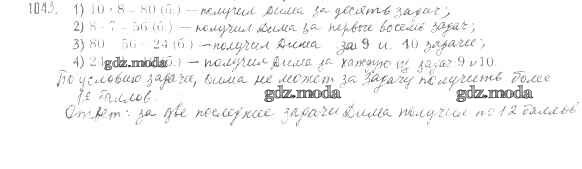 1043. 1) 10 · 8 = 80 (б.) – получил Дима за десять задач;
2) 8 · 7 = 56 (б.) – получил Дима за первые восемь задач;
3) 80 - 56 = 24 (б.) – получил Дима за 9 и 10 задачи;
4) 24 (б.) – получил Дима за каждую из задач 9 и 10.
gdz.moda
По условию задачи, Дима не может за задачу получить более
gdz.moda
gdz.moda
12 баллов.
Ответ: за две последние задачи Дима получил по 12 баллов